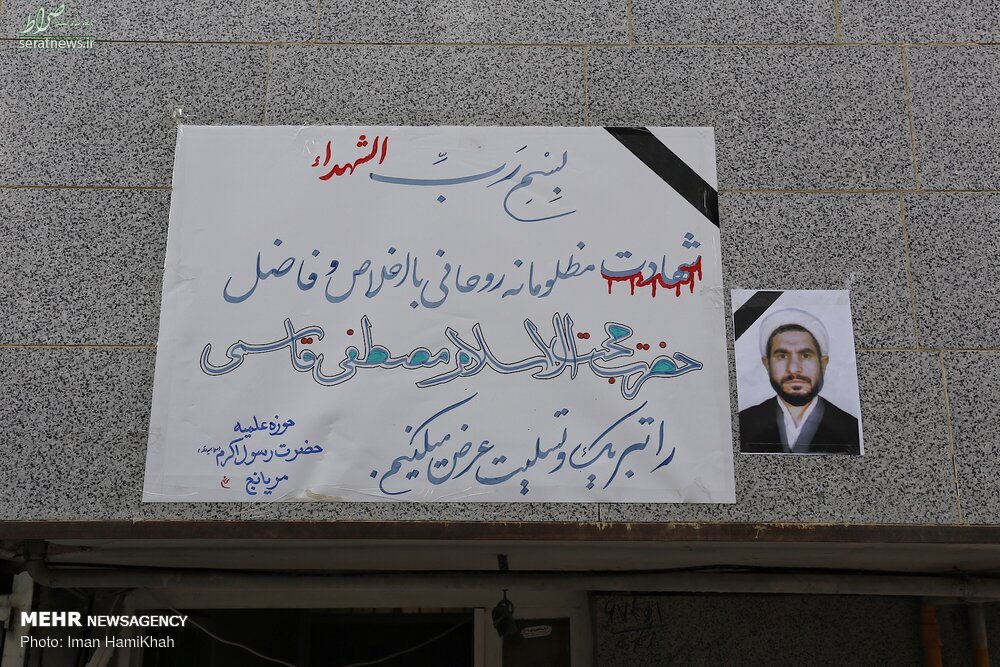 صراط
seratnews.ir
بِسْمِ رَبِّ الشهداء
شهادت مظلومانه روحانی بااخلاص و فاضل
حضرت حجت الاسلام مصطفی قاسمی
را تبریک و تسلیت عرض میکنیم.
حوزه علمیه
حضرت رسول اکرم
مریانج
MEHR NEWSAGENCY
Photo: Iman HamiKhah